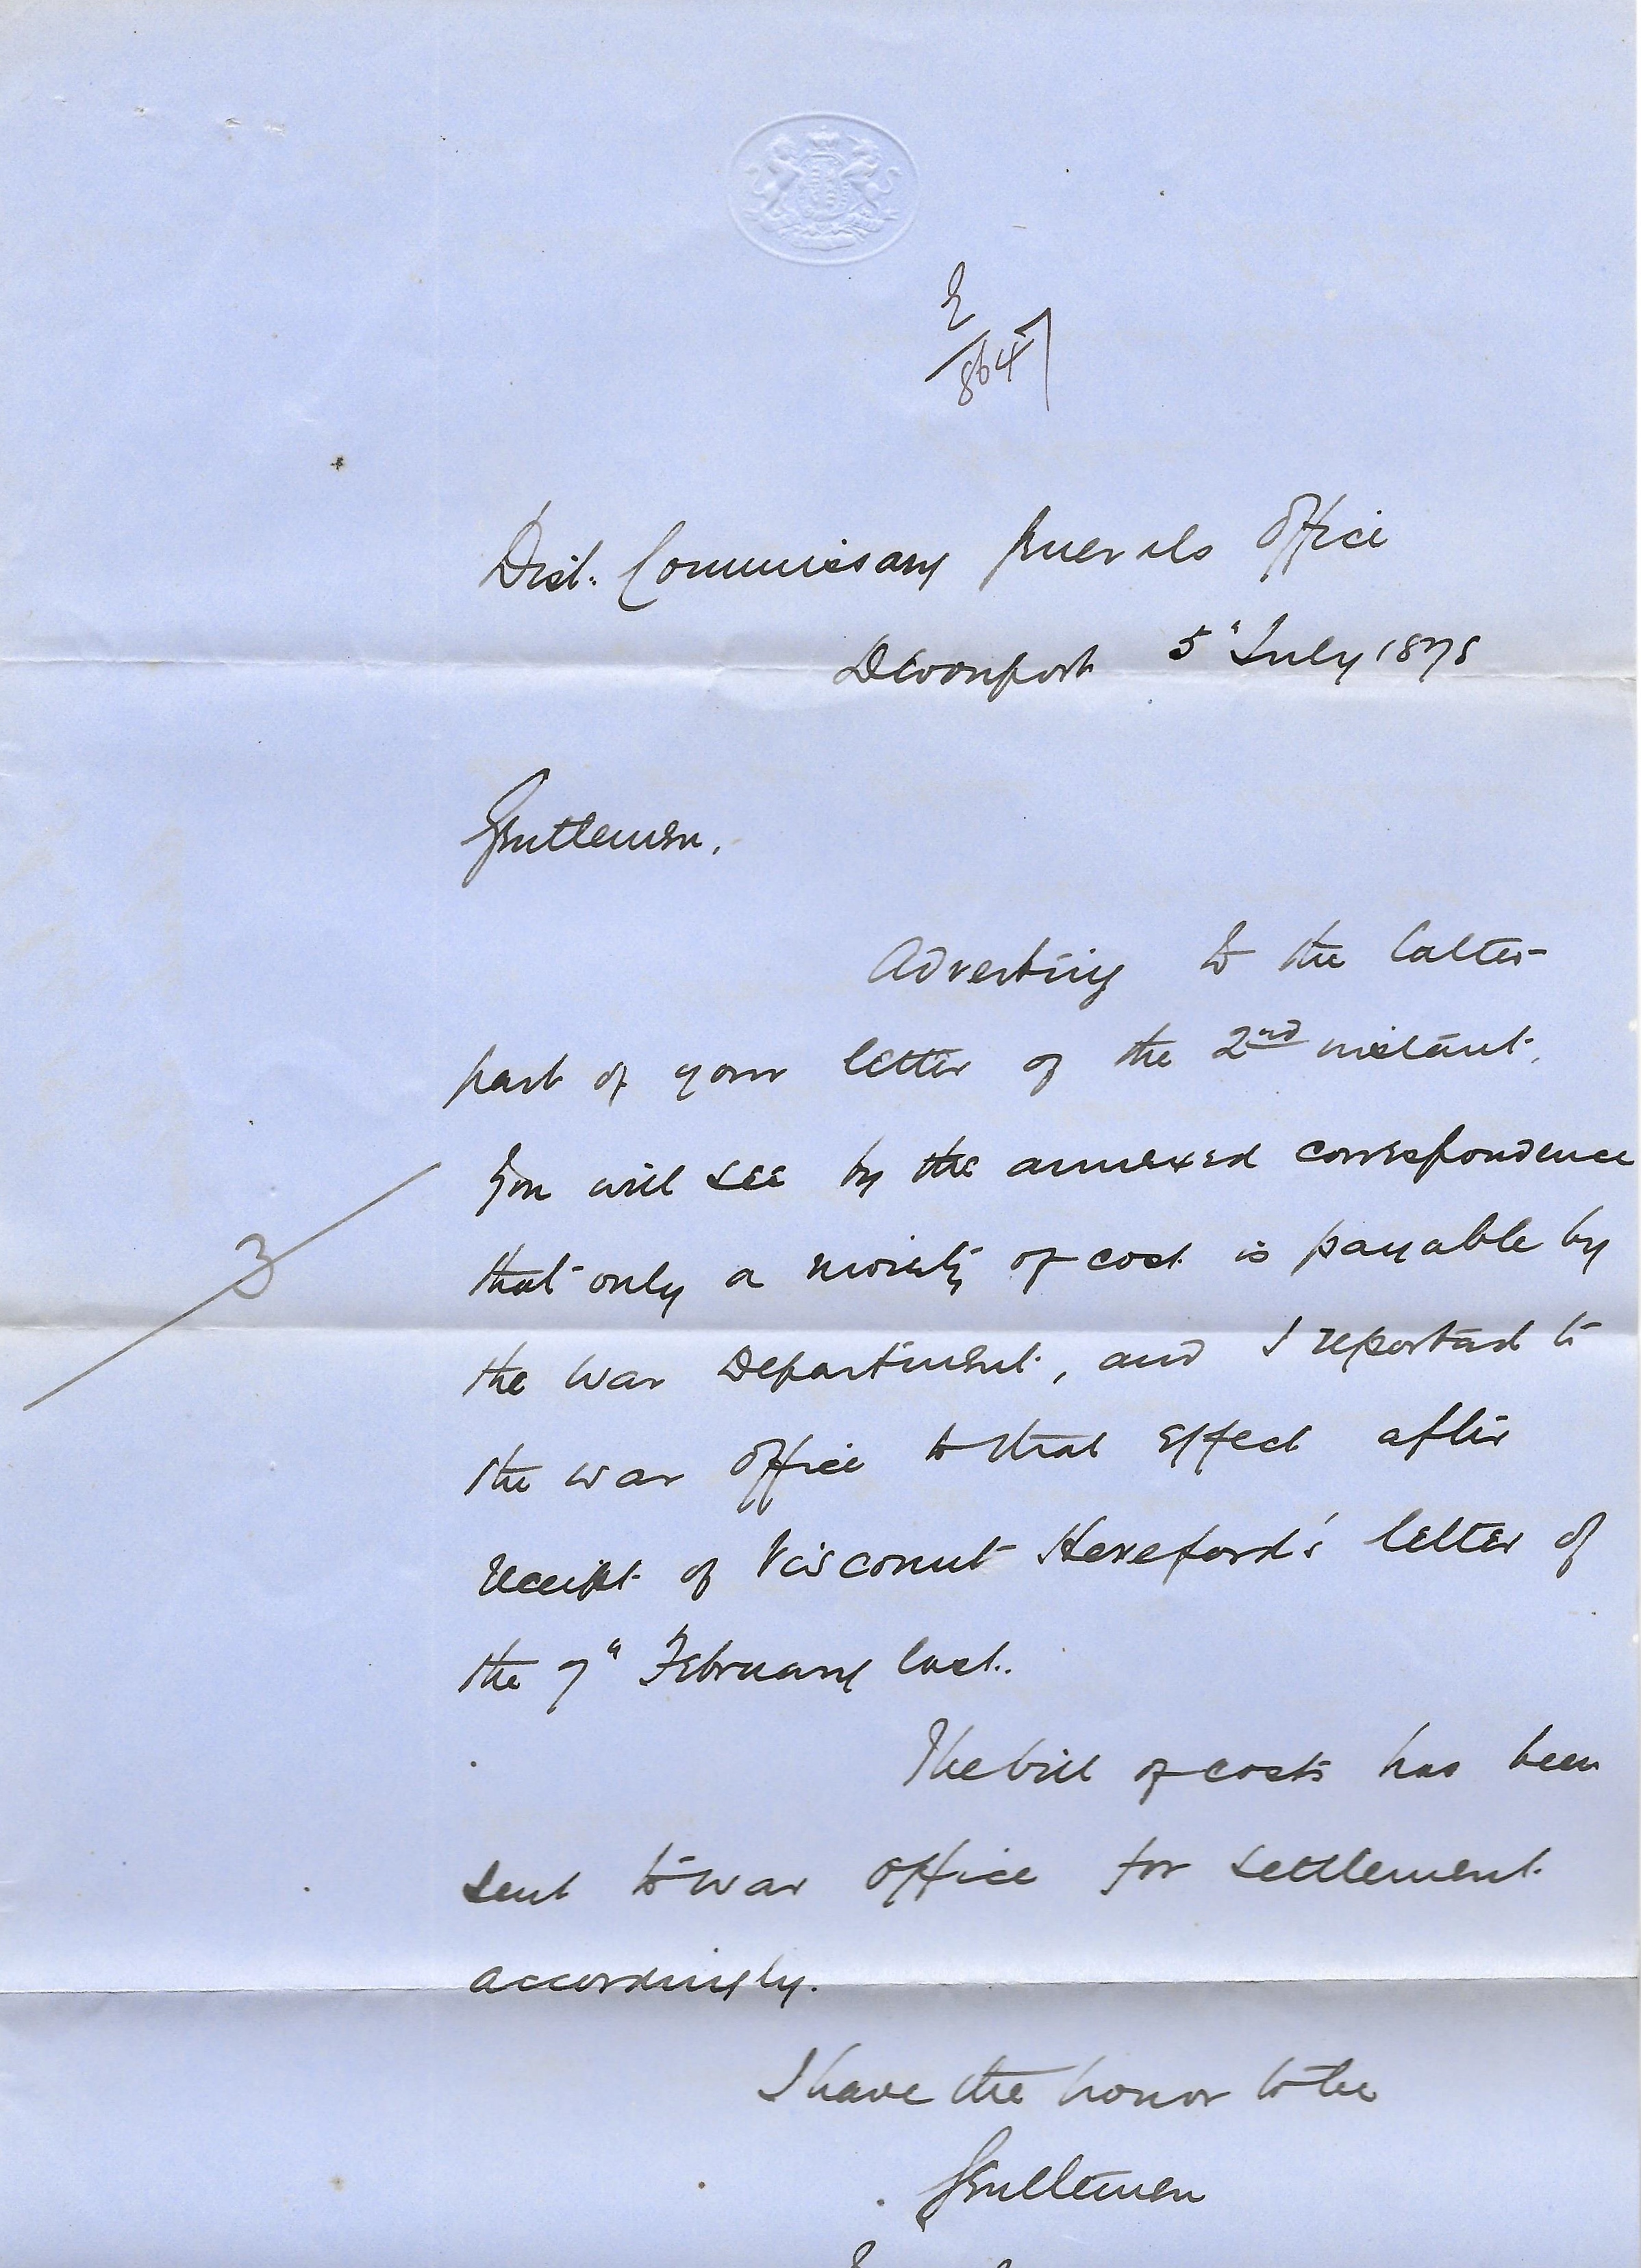 E
/8647
Dist. Commissary Generals Office
Devonport 5" July 1878
Gentlemen.
Adverting to the latter
part of your letter of the 2nd instant.
You will see by the annexed correspondence
that only a moiety of cost is payable by
the War Department, and I reported to
the War Office to that effect after
receipt of Viscount Hereford's letter of
the 7" February last.
3
The bill of costs has been
sent to War Office for settlement
accordingly.
I have the honor to be
Gentlemen